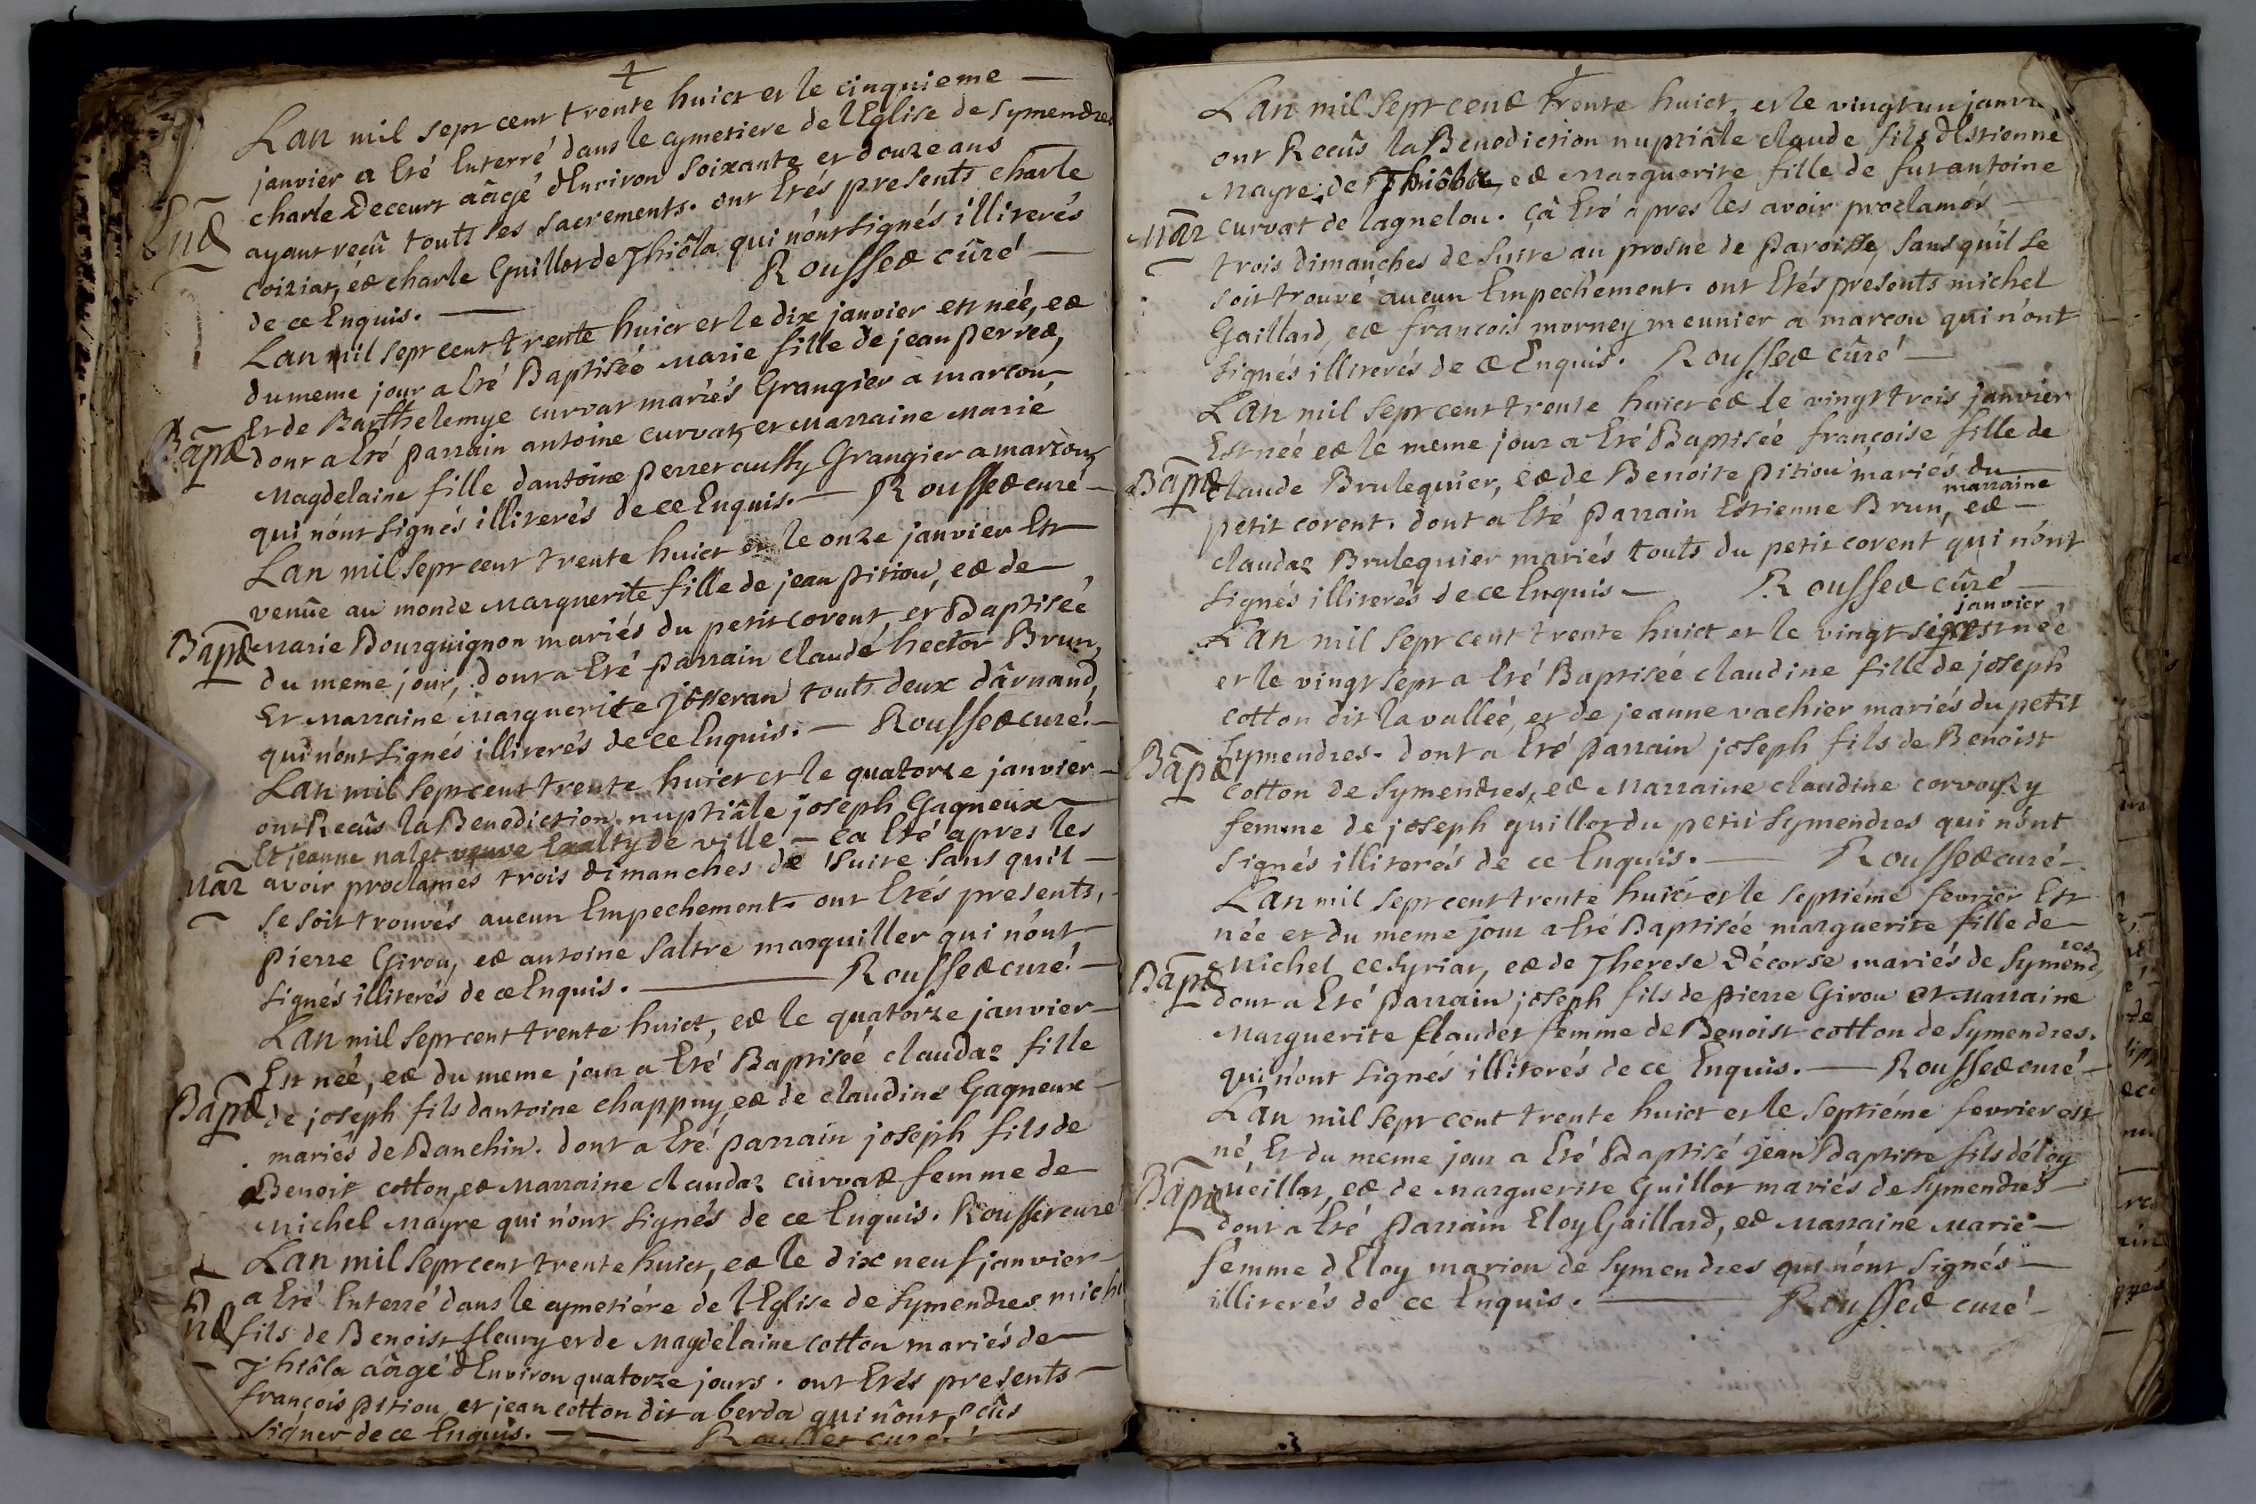 Lan mil sept cent trente huict et le cinquieme
janvier a Eté Enterré dans le cymetiere de lEglise de Symendres
charle Decourt aâgé dEnviron soixante et douze ans
ayant reçû touts ses sacrements. ont Etés presents charle
coiziat, et charle Guillot de Thiôla qui n'ont signés illiterés
de ce Enquis. Rousset cûré
Lan mil sept cent trente huict et le dix janvier est née, et
du meme jour a Eté Baptisée Marie fille de jean perret,
Et de Barthelemye curvat mariés Grangier a marcou,
Bapt dont a Eté parrain antoine curvat, et Marraine Marie
Magdelaine fille dantoine perret aussy Grangier a marcou,
qui n'ont signés illiterés de ce Enquis. Rousset curé
Lan mil sept cent trente huict et le onze janvier Est
venüe au monde Marguerite fille de jean pitiou, et de
Bapt Marie Bourguignon mariés du petit corent, et Baptisée
du meme jour, dont a Eté parrain claude hector Brun,
Et Marraine Marguerite josseran touts deux dârnand,
qui n'ont signés illiterés de ce Enquis. Rousset curé
Lan mil sept cent trente huict et le quatorze janvier
ont Recûs la Benediction nuptiâle joseph Gagneux
Et jeanne nalet de ville ça Eté apres les
Mar avoir proclamés trois dimanches de suite sans quil
se soit trouvés aucun Empechement. ont Etés presents,
pierre Girou, et antoine saltre marguiller qui n'ont
signés illiterés de ce Enquis. Rousset curé
Lan mil sept cent trente huict, et le quatorze janvier
Est née, et du meme jour a Eté Baptisée claudaz fille
Bapt de joseph fils dantoine chappuy, et de claudine Gagneux
mariés de Banchin. dont a Eté parrain joseph fils de
Benoit cotton, et Marraine claudaz curvat femme de
Michel Mayre qui n'ont signés de ce Enquis. Rousset curé
Lan mil sept cent trente huict, et le dix neuf janvier
a Eté Enterré dans le cymetiére de lEglise de Symendres mich
fils de Benoist fleury et de Magdelaine cotton mariés de
Thiôla aâgé dEnviron quatorze jours. ont Etés presents
françois pitiou, et jean cotton dit a berda qui n'ont sçûs
signer de ce Enquis. Rousset curé
Lan mil sept cent trente huict, et le vingt un janvi
ont Recûs la Benediction nuptiâle claude fils dEstienne
Mayre de Thiôla, et Marguerite fille de fut antoine
Mar curvat de lagnelou. çà Eté apres les avoir proclamés
trois dimanches de suite au prosne de paroisse, sans quil se
soit trouvé aucun Empechement. ont Etés presents michel
Gaillard, et françois morney meunier a marcou qui n'ont
signés illiterés de ce Enquis. Rousset cûré
Lan mil sept cent trente huict et le vingt trois janvier
Est née et le meme jour a Eté Baptisée françoise fille de
Bapt claude Brulequier, et de Benoite pitiou mariés du
petit corent. dont a Eté parrain Estienne Brun, et marraine
claudaz Brulequier mariés touts du petit corent qui n'ont
signés illiterés de ce Enquis Rousset cûré
Lan mil sept cent trente huict et le vingt six janvier est née
et le vingt sept a Eté Baptisée claudine fille de joseph
cotton dit la vallée, et de jeanne vachier mariés du petit
Symendres. dont a Eté parrain joseph fils de Benoist
Bapt cotton de Symendres, et Marraine claudine corvoyzy
femme de joseph guillot du petit Symendres qui n'ont
signés illiterés de ce Enquis. Rousset curé
Lan mil sept cent trente huict et le septiéme fevrier Est
née et du meme jour a Eté Baptisée marguerite fille de
Bapt Michel cesyriat, et de Therese Décorse mariés de Symendres
dont a Eté parrain joseph fils de pierre Girou et Marraine
Marguerite flaudet femme de Benoist cotton de Symendres.
qui n'ont signés illiterés de ce Enquis. Rousset curé
Lan mil sept cent trente huict et le septiéme fevrier est
né, Et du meme jour a Eté Baptisé jean Baptiste fils déloy
Bapt vieillat, et de Marguerite Guillot mariés de Symendres
dont a Eté parrain Eloy Gaillard, et Marraine Marie
femme dEloy marion de Symendres qui n'ont signés
illiterés de ce Enquis. Rousset curé